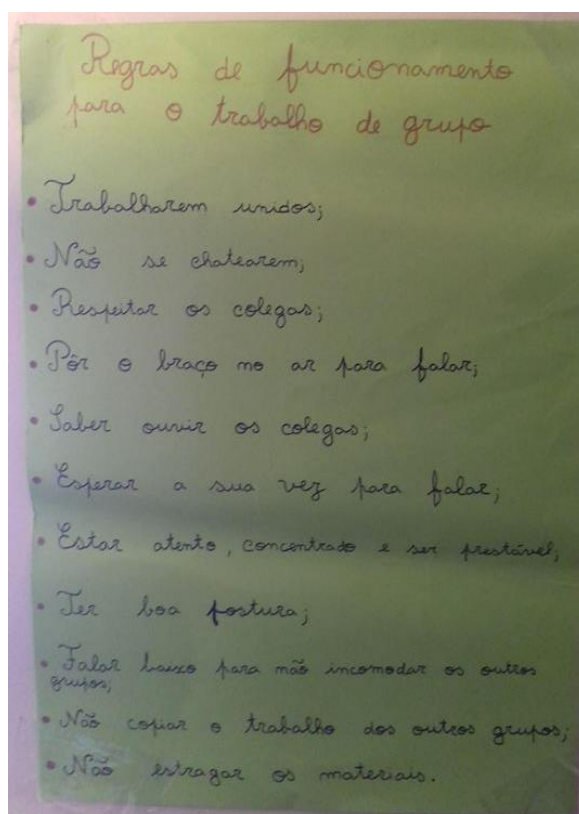 Regras de funcionamento
para o trabalho de grupo
• Trabalharem unidos;
• Não se chatearem;
• Respeitar os colegas;
• Pôr o braço no ar para falar;
• Saber ouvir os colegas;
• Esperar a sua vez para falar;
• Estar atento, concentrado e ser prestável;
• Ter boa postura;
• Falar baixo para não incomodar os outros
grupos;
• Não copiar o trabalho dos outros grupos;
• Não estragar os materiais.